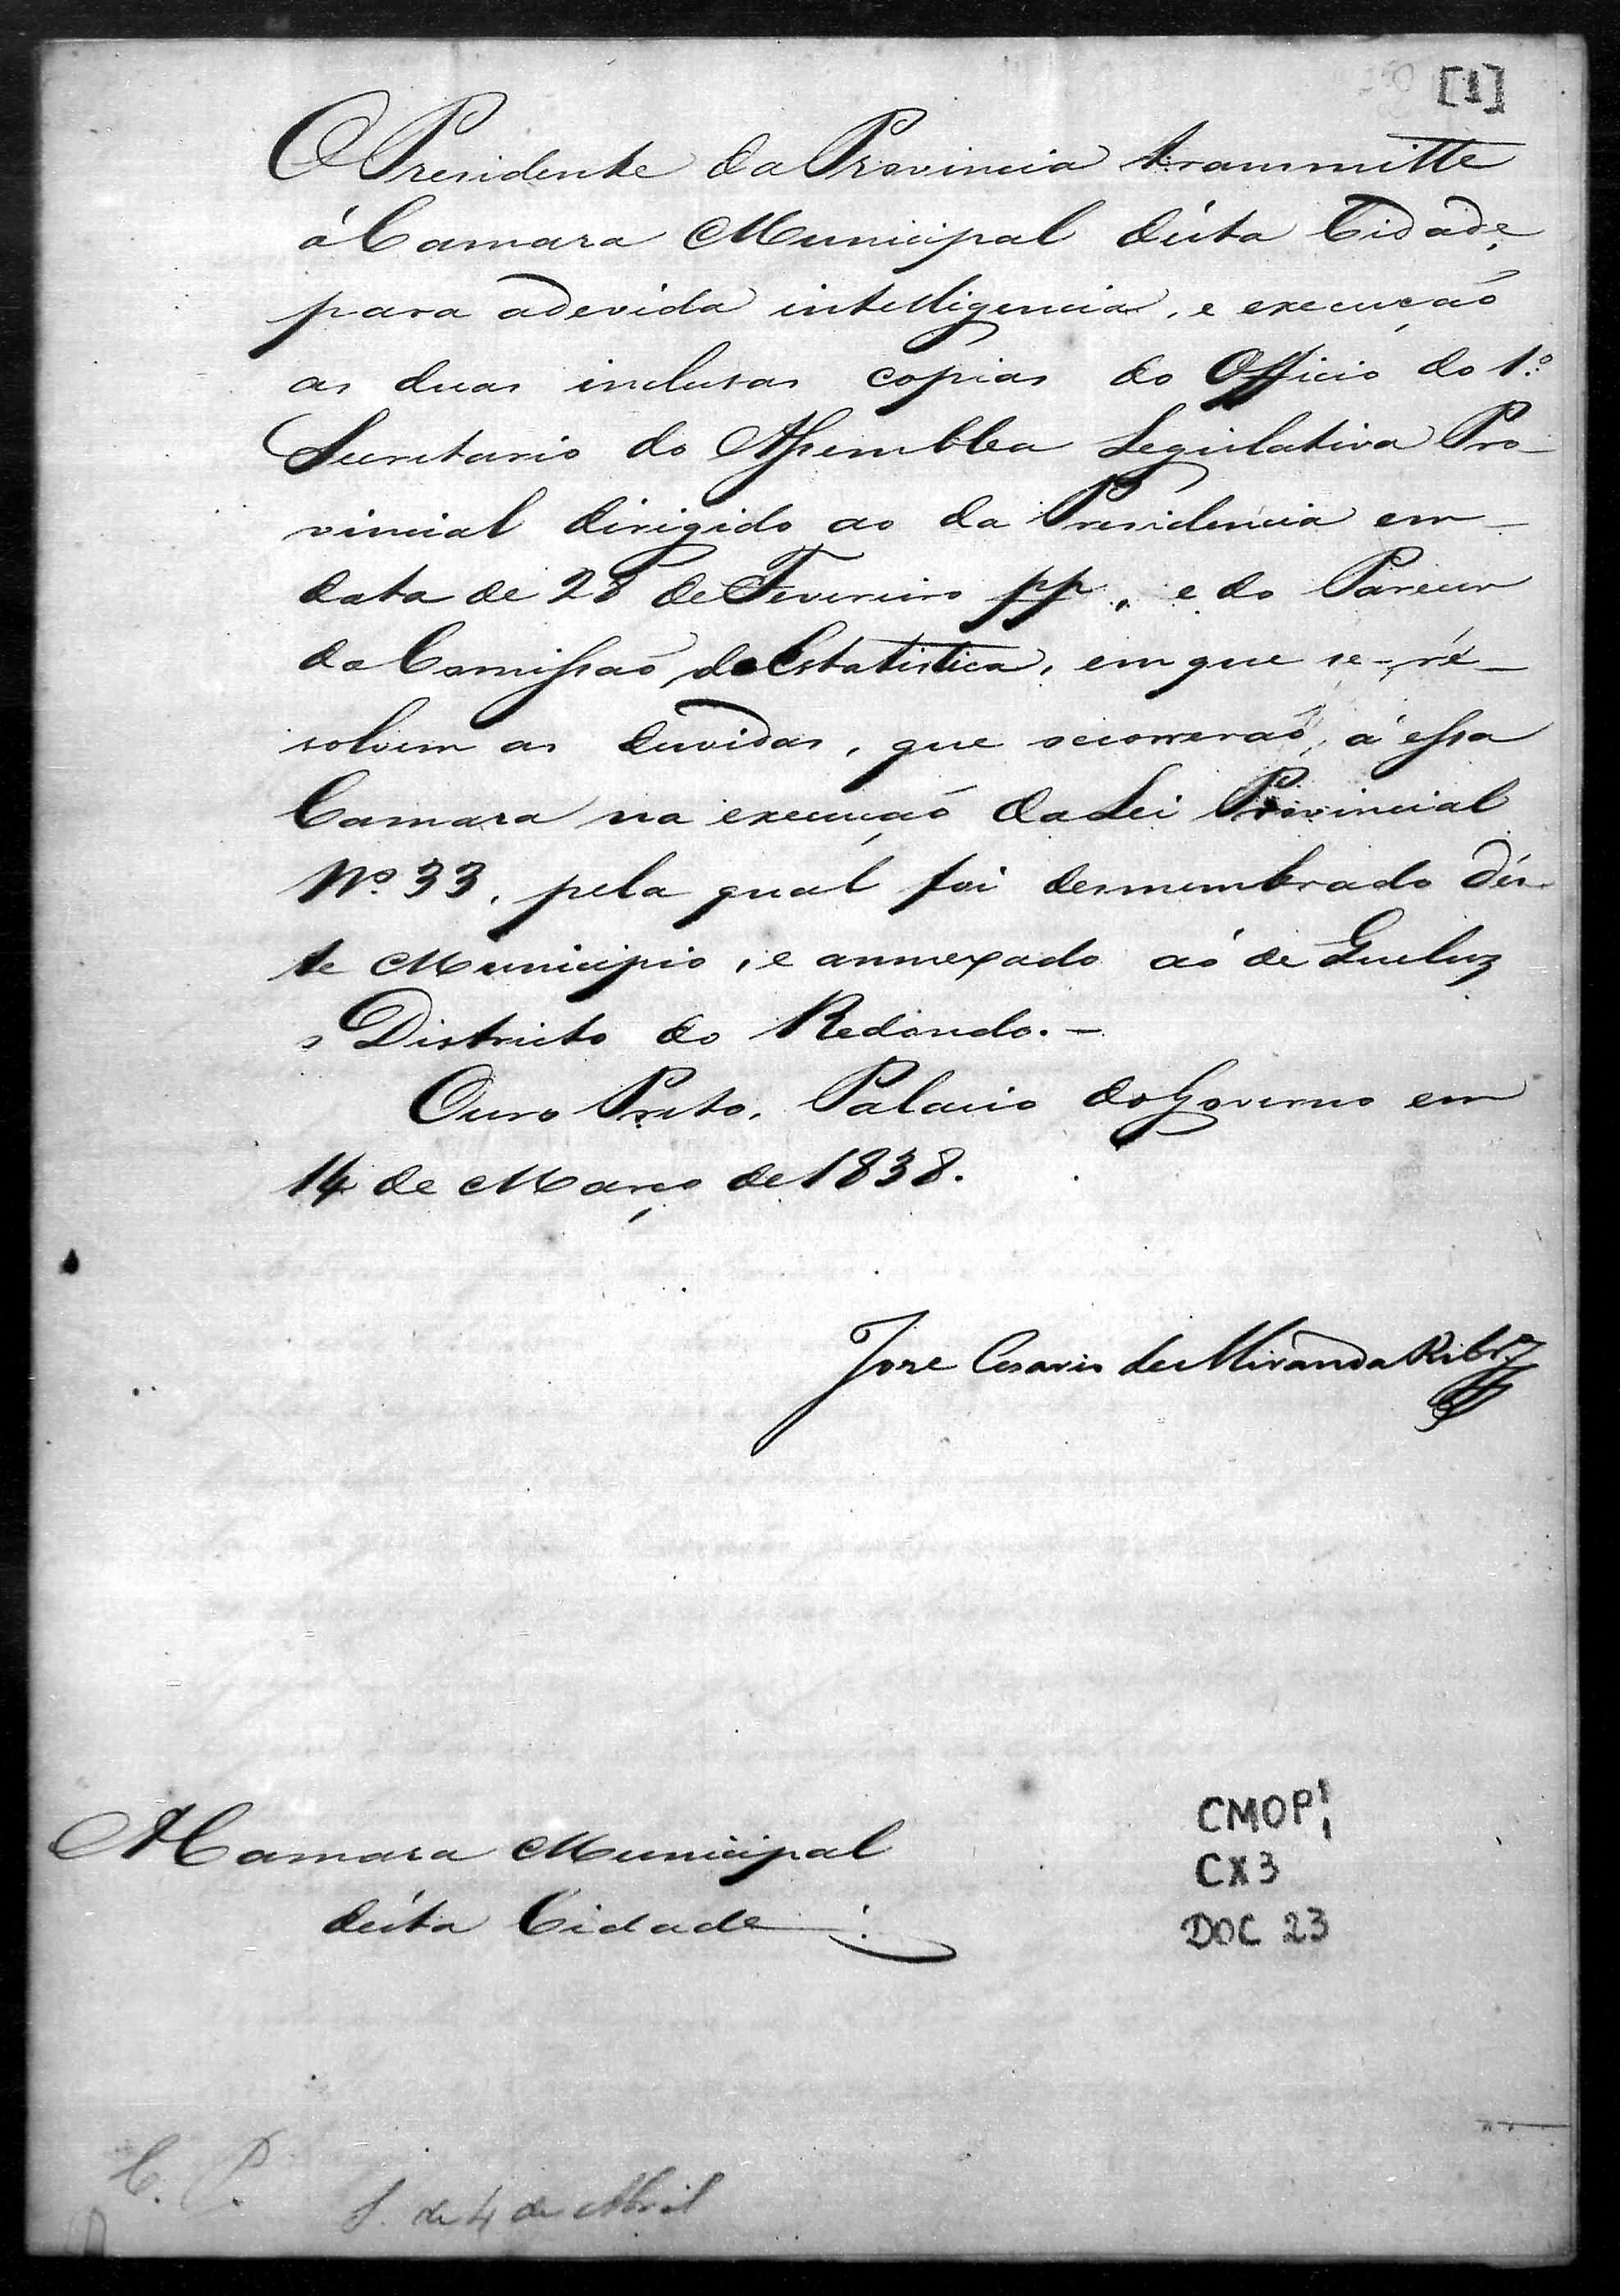 [1]
O Presidente da Provincia transmitte
á Camara Municipal désta Cidade,
para a devida intelligencia, e execução
as duas inclusas copias do Officio do 1.º
Secretario da Assemblea Legislativa Pro-
vincial dirigido ao da Presidencia em
data de 28 de Fevereiro pp., e do Parecer
da Comissão de Estatistica, em que se-ré-
solvem as duvidas, que occorrerão, á essa
Camara na execução da Lei Provincial
Nº 33, pela qual foi desmembrado dés-
te Municipio, e annexado aó de Queluz
o Districto do Redondo.-
Ouro Preto, Palacio do Governo em
14 de Março de 1838.
Jose Cesario de Miranda Ribr.º
A Camara Municipal
désta Cidade
CMOP
CX3
DOC 23
C. P.
S. de 4 de Abril